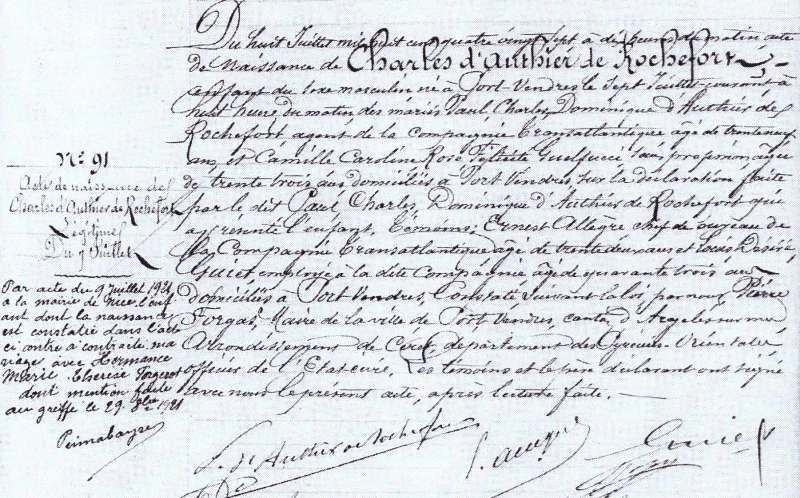 Nº 91
Acte de naissance de
Charles d'Authier de Rochefort
Légitime
Du 7 Juillet
Par acte du 9 juillet 1921
à la mairie de Nice l'enf
ant dont la naissance
est constatée dans l'acte
ci contre a contracté ma
riage avec Hermance
Marie Thérèse
dont mention faite
au greffe le 29 1921
Du huit Juillet mil huit cent quatre vingt sept à dix heures du matin acte
de Naissance de Charles d'Authier de Rochefort
enfant du sexe masculin né à Port-Vendres le sept Juillet courant à
huit heure du matin des mariés Paul, Charles, Dominique d'Authier de
Rochefort agent de la Compagnie Transatlantique âgé de trente neuf
ans, et Camille Caroline Rose Félicité Guelfucci sans profession âgée
de trente trois ans domiciliés à Port Vendres, sur la déclaration faite
par le dit Paul Charles, Dominique d'Authier de Rochefort qui
a présenté l'enfant, Témoins: Ernest Allègre chef de bureau de
la Compagnie Transatlantique âgé de trente deux ans et Louis Désiré
Guiet employé à la dite Compagnie âgé de quarante trois ans
domiciliés à Port Vendres, Constaté suivant la loi, par nous Pierre
Forgas, Maire de la ville de Port Vendres, canton d'Argelès sur mer
Arrondissement de Céret, département des Pyrénées-Orientales
officier de l'Etat civil, Les témoins et le père déclarant ont signé
avec nous le présent acte, après lecture faite.
d'Authier de Rochefort
Guiet